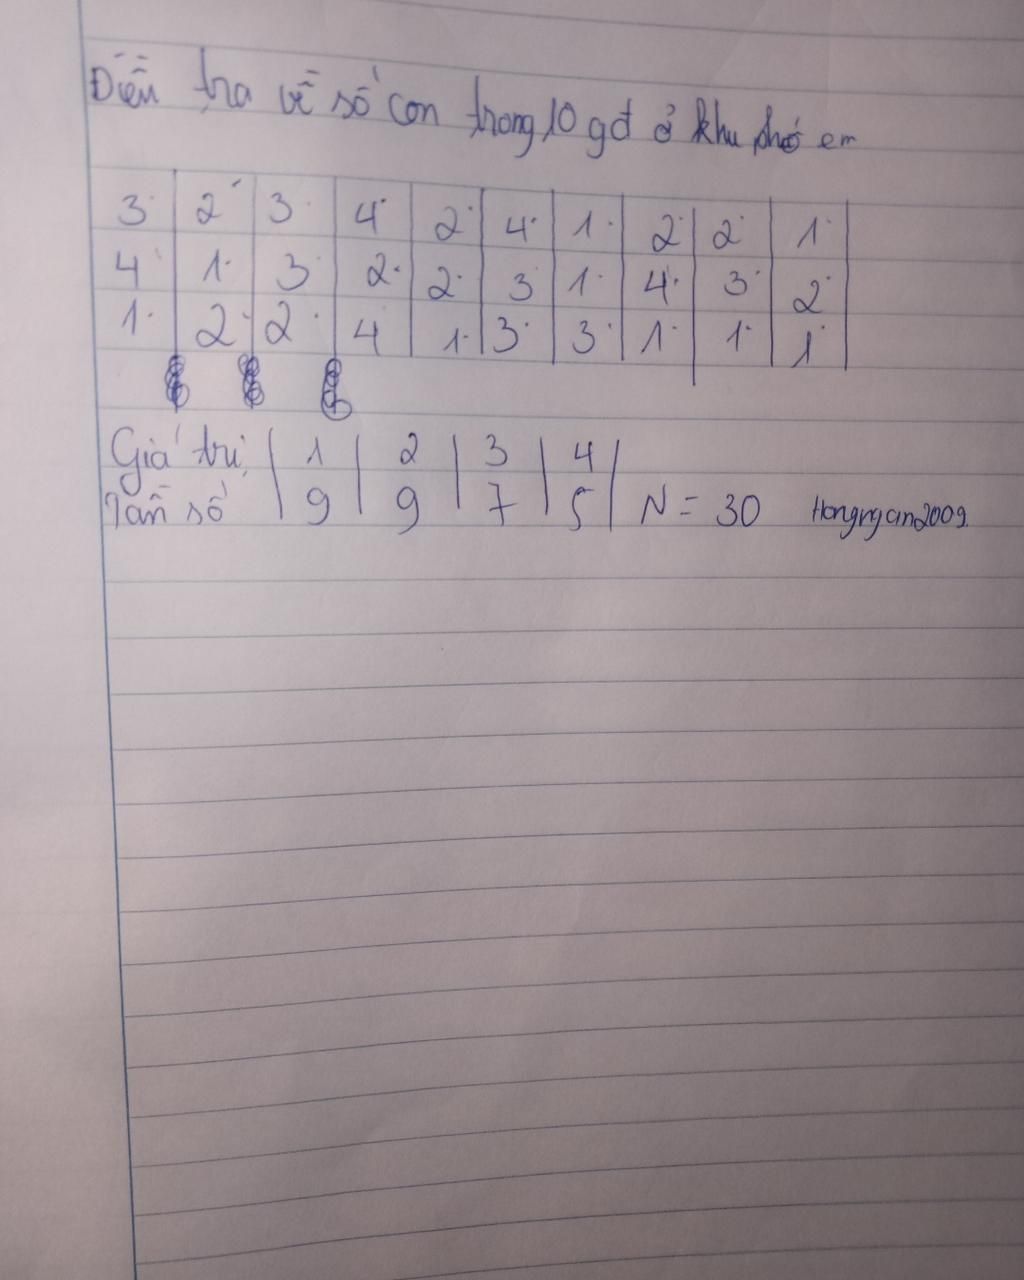 Điều tra về số con trong 10 gđ ở khu phố em
3 2 3 4 2 4 1 2 2 1
4 1 3 2 2 3 1 4 3 2
1 2 2 4 1 3 3 1 1 1
Giá trị 1 2 3 4
Tần số 9 9 7 5 N = 30 Hongngan2009.